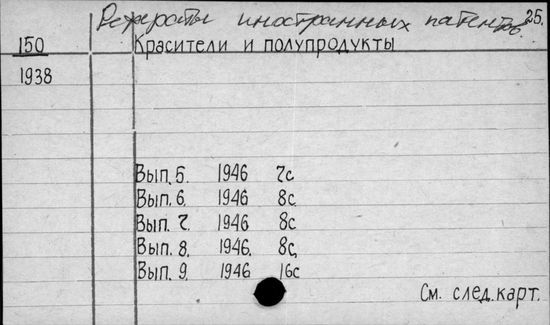 Рефераты иностранных патентов 25.
150 Красители и полупродукты
1938
Вып. 5. 1946 7с
Вып. 6. 1946 8с.
Вып. 7. 1946 8с
Вып. 8. 1946. 8с.
Вып. 9. 1946 16с
См. след. карт.